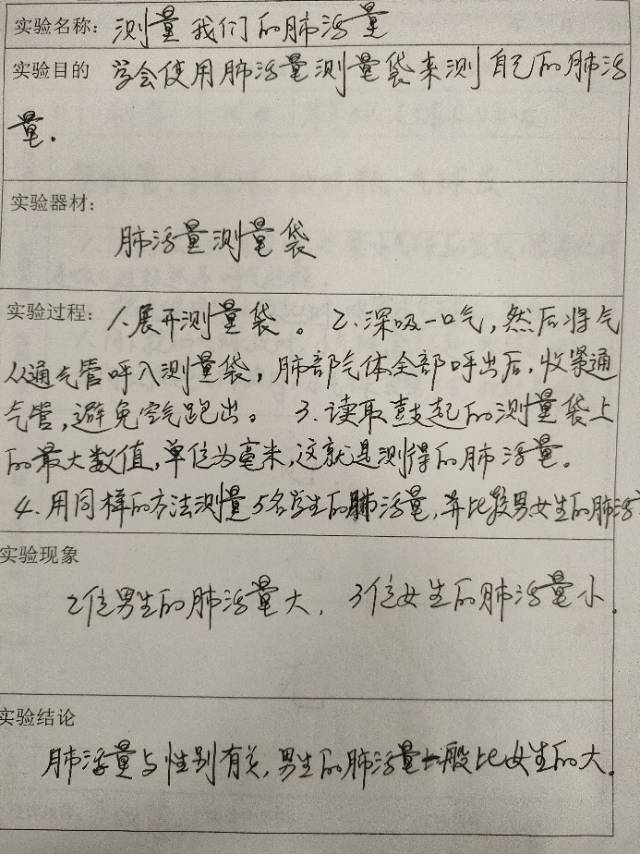 实验名称：测量我们的肺活量
实验目的 学会使用肺活量测量袋来测自己的肺活
量.
实验器材：
肺活量测量袋
实验过程：1.展开测量袋。2.深吸一口气，然后将气
从通气管呼入测量袋，肺部气体全部呼出后，收紧通
气管，避免空气跑出。 3.读取鼓起的测量袋上
的最大数值，单位为毫米，这就是测得的肺活量。
4.用同样的方法测量5名学生的肺活量，并比较男女生的肺活
实验现象
2位男生的肺活量大，3位女生的肺活量小.
实验结论
肺活量与性别有关，男生的肺活量一般比女生的大.